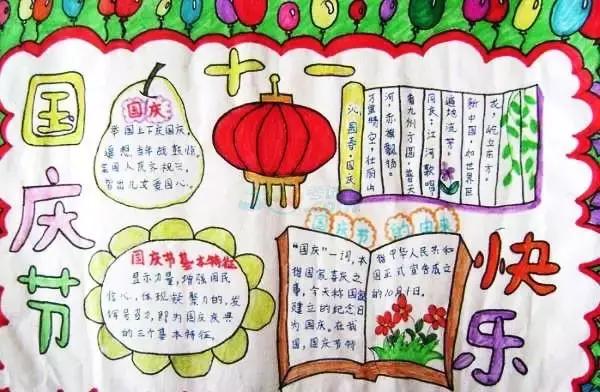 国庆节
十一
国庆
举国上下庆国庆,
遥想当年战鼓惊。
全国人民齐祝三,
皆出儿女爱国心。
沁园春·国庆
万里晴空,壮丽山
河,赤旗飘扬。
看九州方圆,普天
同庆;江河歌唱,
遍地流芳。
新中国,如世界巨
龙,屹立东方。
国庆节基本特征
显示力量,增强国民
信心,体现凝聚力的,发
挥号召力,即为国庆庆典
的三个基本特征。
国庆节的由来
“国庆”一词,本
指国家喜庆之
事,今天称国家
建立的纪念日
为国庆。在我
国,国庆节特
指中华人民共和
国正式宣告成立
的10月1日。
快乐